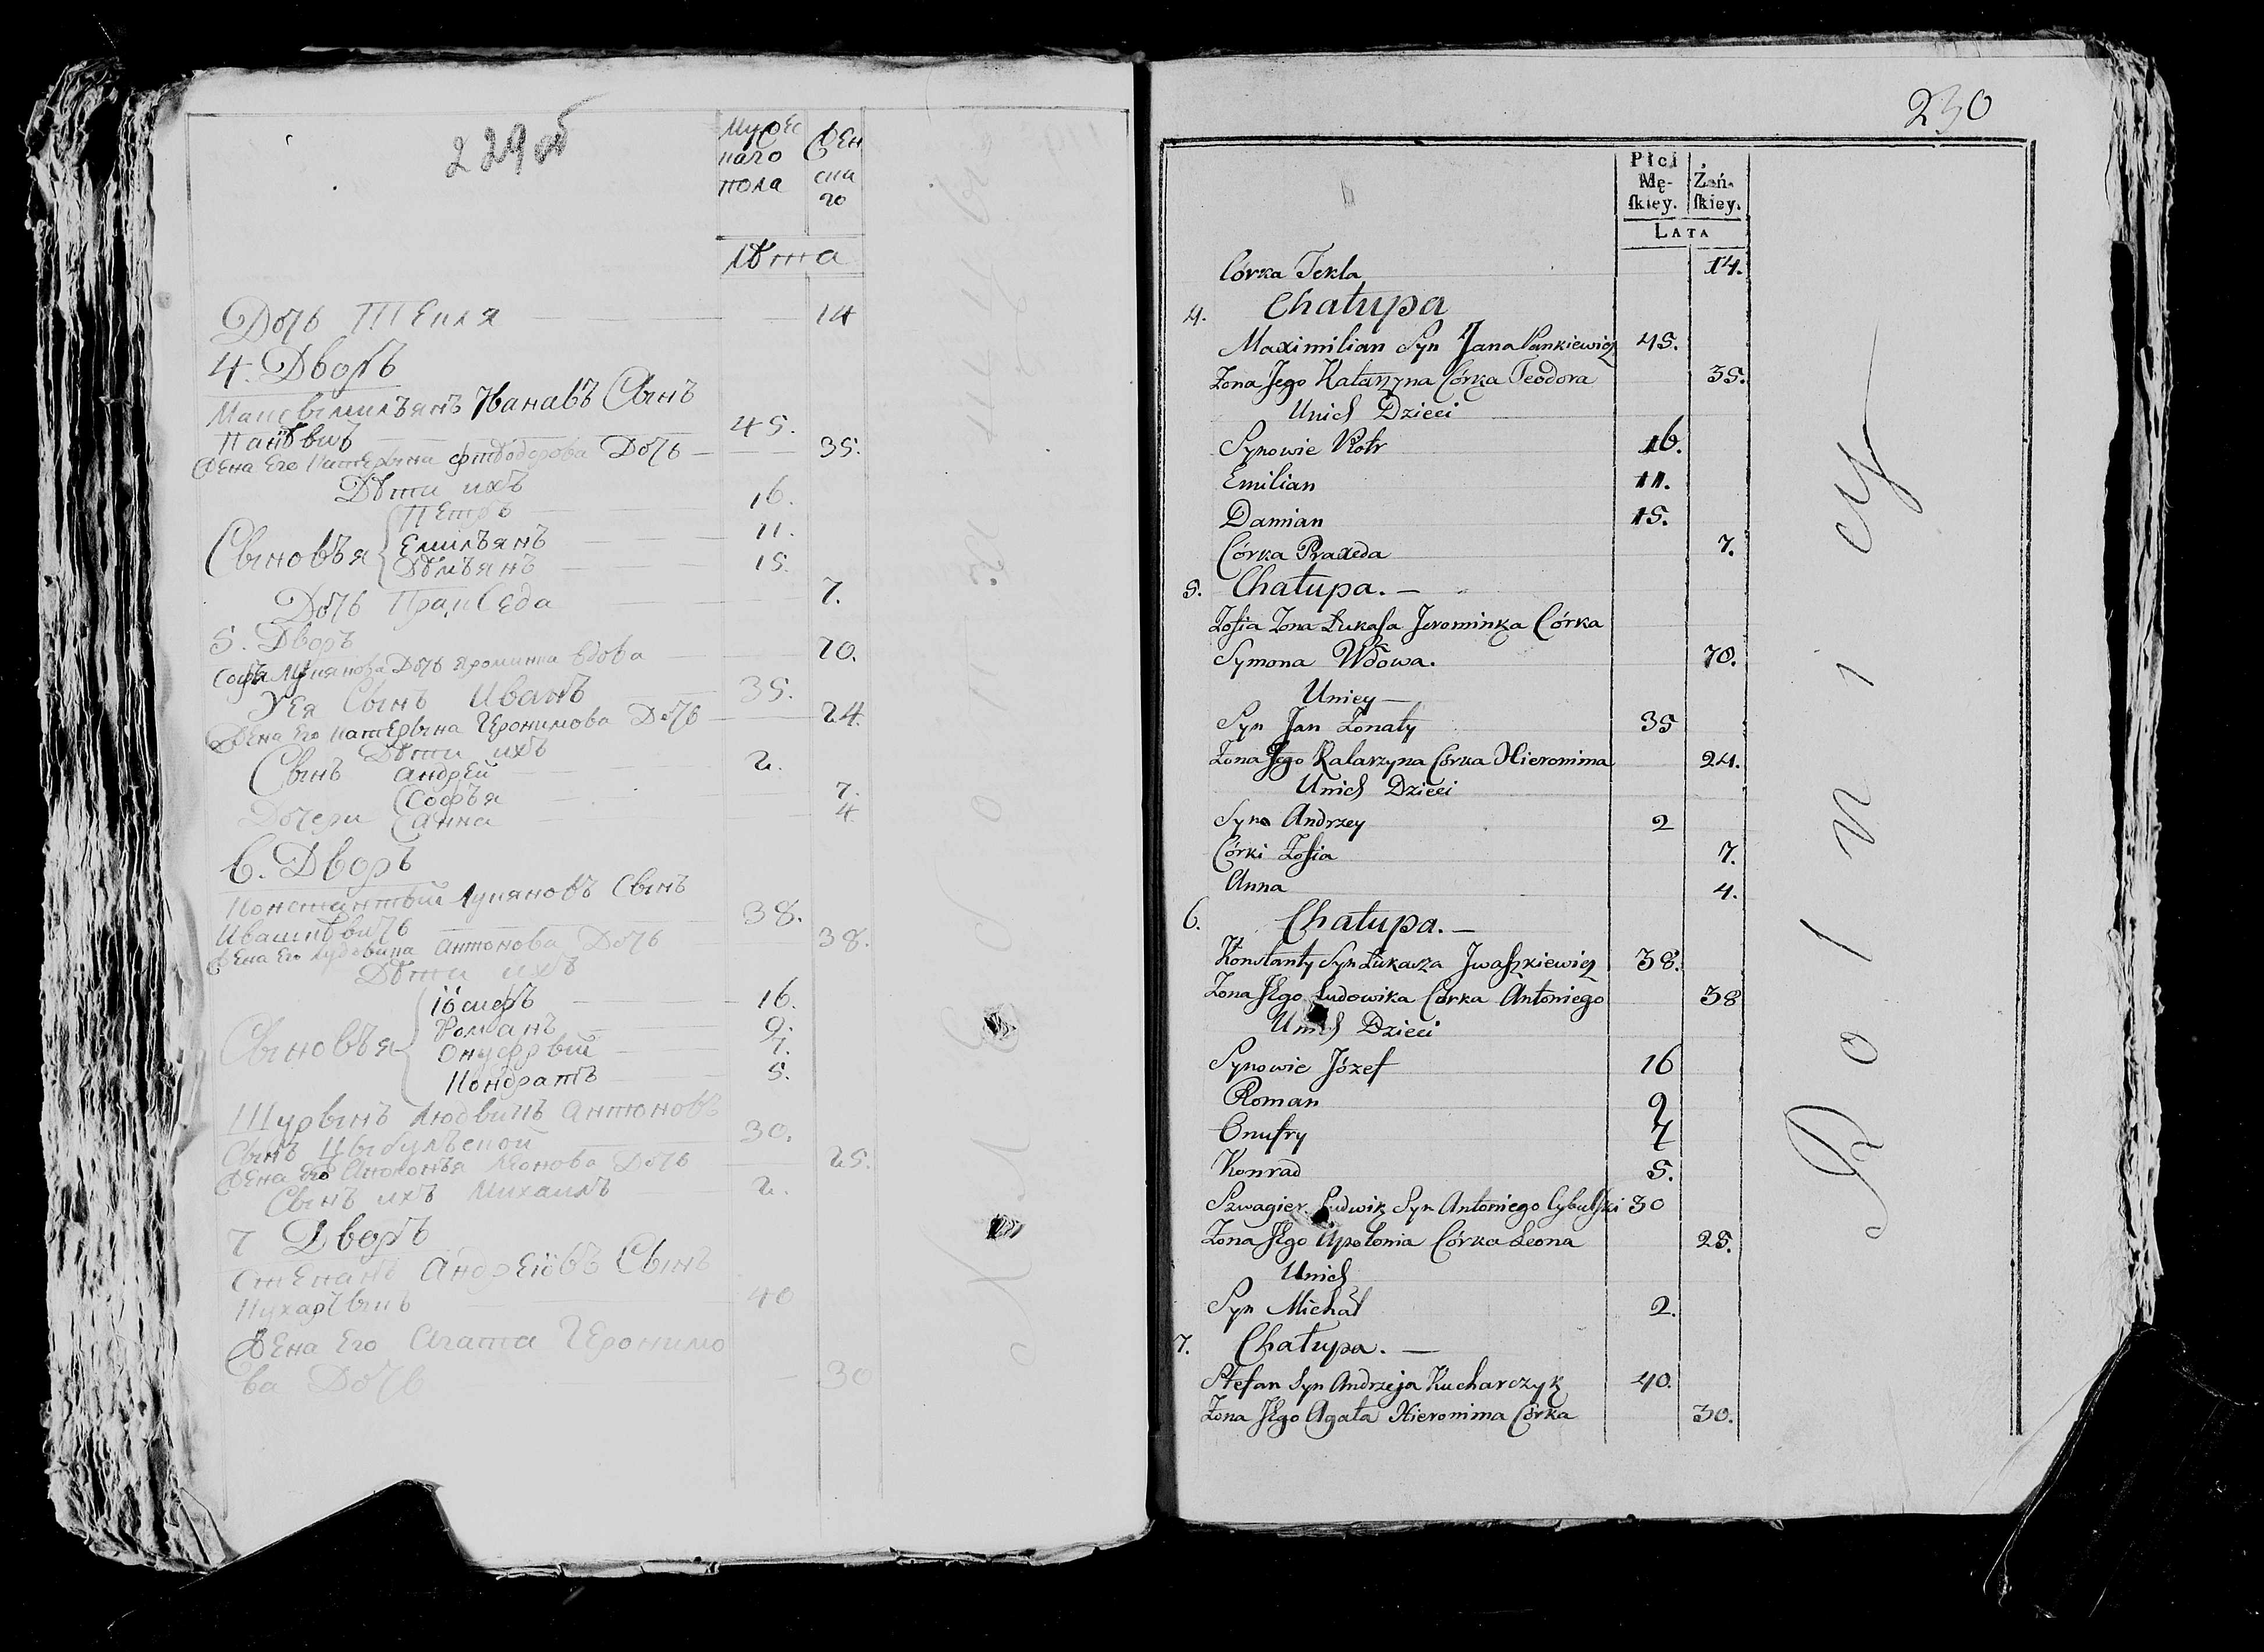 229 об
Мужес
каго
пола
Жен
ска
го
Лѣта
Дочь Текля 14
4. Дворъ
Максымилъянъ Ивановъ Сынъ
45.
Жена Его Катерына Дочь 35.
Дѣти ихъ
Сыновъя Петръ 16.
Емилъянъ 11.
Дѣмъянъ 15.
Дочь Пракседа 7.
5. Дворъ
Софъя Дочь вдова 70.
У Ея Сынъ Иванъ 35.
Жена Его Катерына Иеронимова Дочь 24.
Дѣти ихъ
Сынъ Андрей 2.
Дочери Софъя 7.
Анна 4
6. Дворъ
Константый Лукяновъ Сынъ
Ивашкѣвичъ 38.
Жена Его Людовика Антонова Дочь 38.
Дѣти ихъ
Сыновъя Iосифъ 16.
Романъ 9.
Онуфрый 7.
Кондратъ 5.
Шурынъ Людвикъ Антоновъ
Сынъ Цыбулъской 30.
Жена Его Аполонъя Леонова Дочь 25.
Сынъ ихъ Михаилъ 2.
7 Дворъ
Степанъ Андрейовъ Сынъ
Кухарчыкъ 40
Жена Его Агата Иеронимо
ва Дочь 30
230
Płci
Mę-
ſkiey.
Żeń-
ſkiey.
LATA
Córka Tekla 14.
4. Chałupa
Maximilian Syn Jana Pankiewicz 45.
Zona Jego Katarzyna Córka Teodora 35.
Unich Dzieci
Synowie Piotr 16.
Emilian 11.
Damian 15.
Córka Praxeda 7.
5. Chałupa. —
Zofia Zona Łukaſa Jerominka Córka
Symona Wdowa. 70.
Uniey —
Syn Jan Zonaty 35
Zona Jego Katarzyna Córka Hieronima 24.
Unich Dzieci
Syn Andrzey 2
Córki Zofia 7.
Anna 4.
6. Chałupa. —
Konstanty Syn Łukasza Jwaſzkiewicz 38.
Zona Jego Ludowika Córka Antoniego 38
Unich Dzieci
Synowie Józef 16
Roman 9
Onufry 7
Konrad 5.
Szwagier Ludwik Syn Antoniego Cybulſki 30
Zona Jego Apolonia Córka Leona 25.
Unich
Syn Michał 2.
7. Chałupa. —
Stefan Syn Andrzeja Kucharczyk 40.
Zona Jego Agata Hieronima Córka 30.
Rolnicy